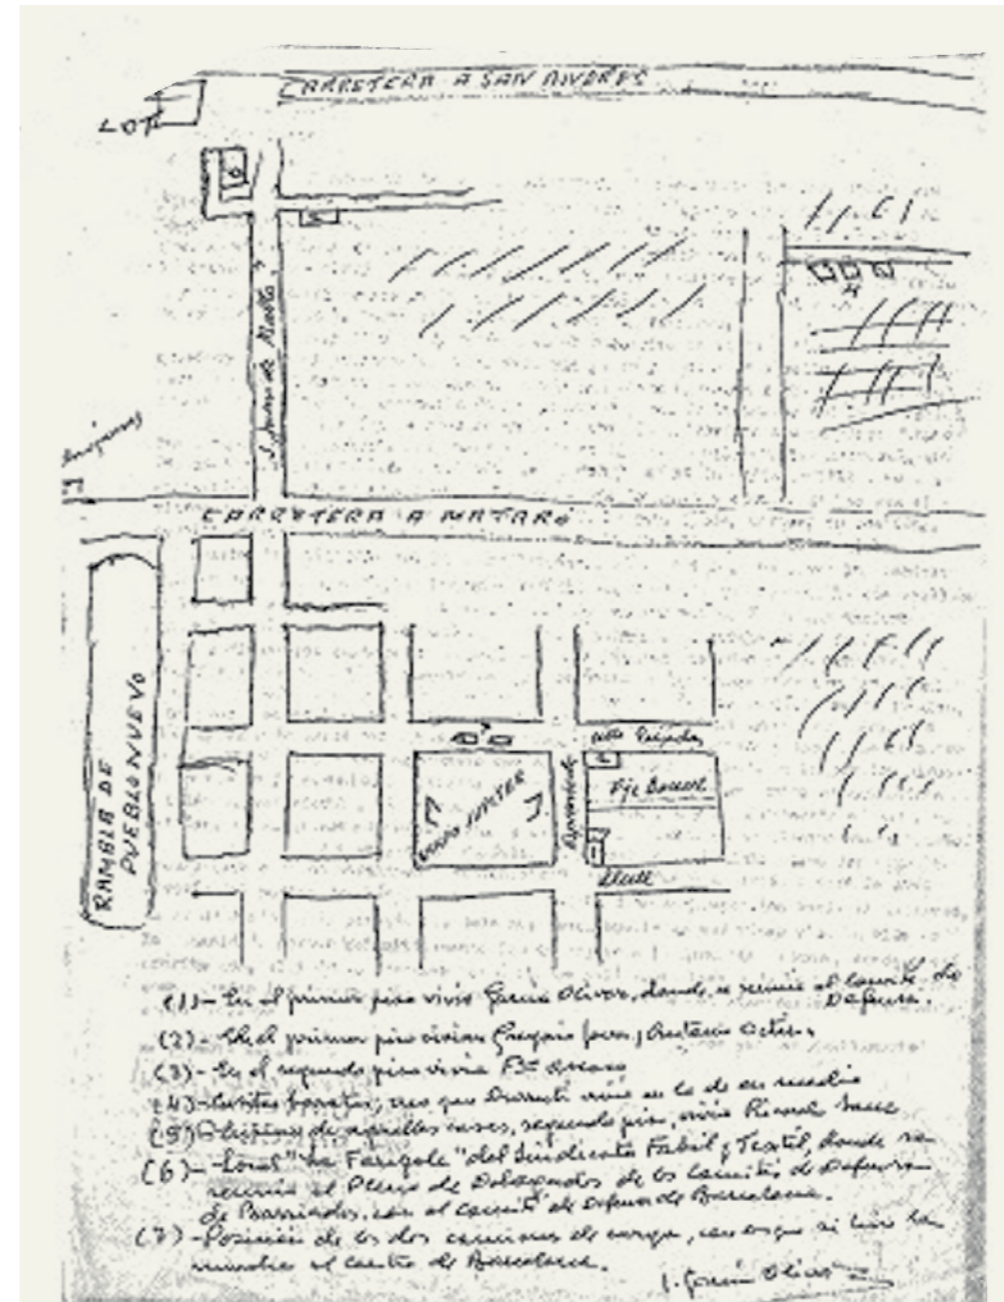 CARRETERA A SAN ANDRES
LOT
S. Juan de Malta
CARRETERA A MATARÓ
RAMBLA DE
PUEBLO NUEVO
CAMPO JUPITER
Espronceda
Llull
(1)- En el primer piso vivía García Oliver, donde se reunía el Comité de
Defensa.
(2)- En el primer piso vivían Gregorio Jover y Antonio Ortiz.
(3)- En el segundo piso vivía Fco Ascaso
(4)- Casitas baratas, creo que Durruti vivía en la de en medio
(5)- de aquellas casas, segundo piso, vivía Ricardo Sanz
(6)- Local "La Farigola" del Sindicato Fabril y Textil, donde se
reunía el Pleno de Delegados de los Comités de Defensa
de Barriadas, con el Comité de Defensa de Barcelona.
(7)- Posición de los dos camiones de carga, con los que se hizo la
marcha al centro de Barcelona.
J. García Oliver